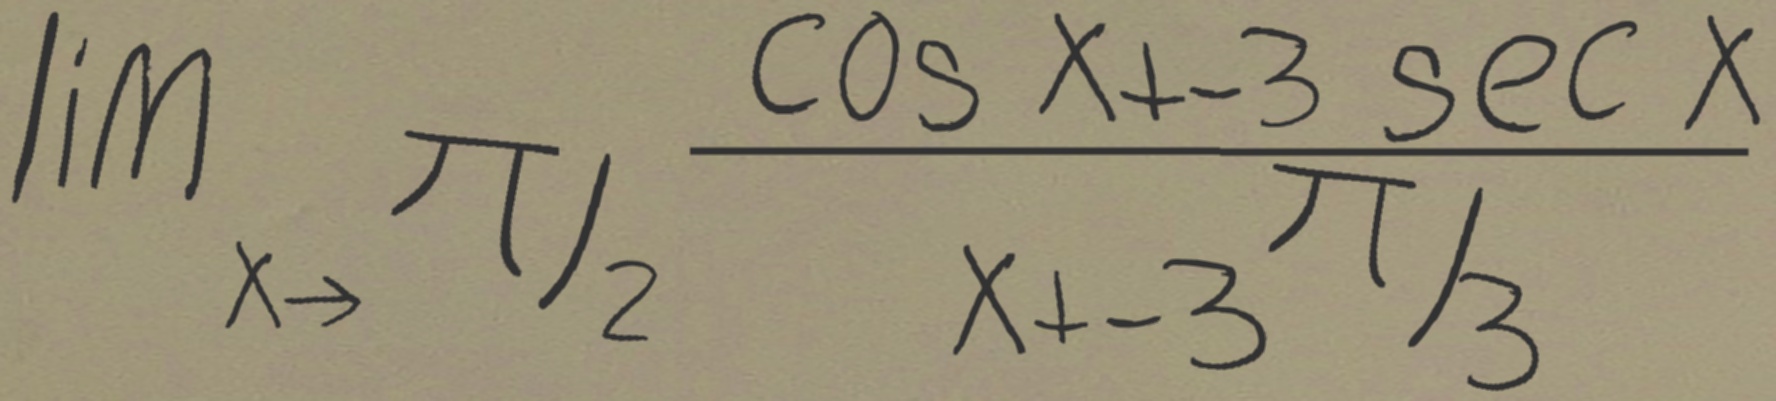 \lim_{x \to \pi/2} \frac{\cos x + -3 \sec x}{x + -3^{\pi/3}}